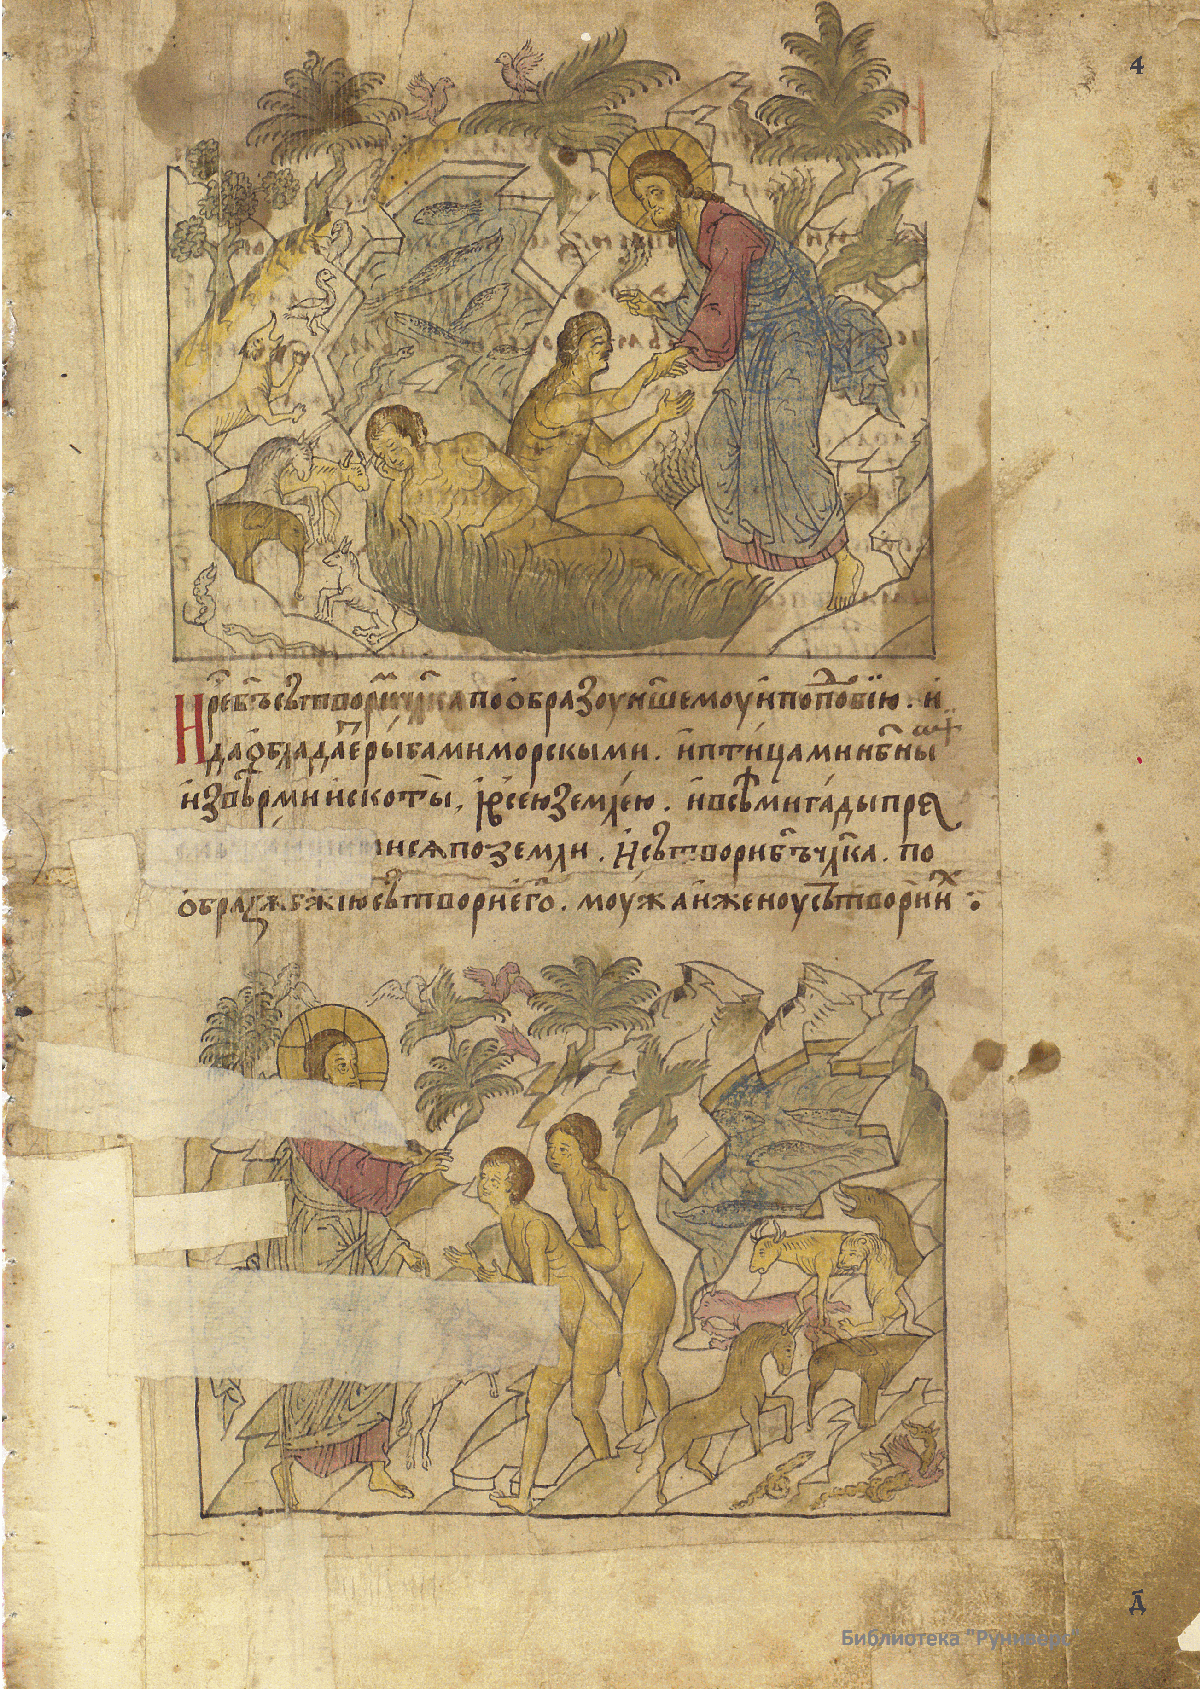 4
И рече бг҃ъ сътворим чл҃ка по образоу н҃шемоу и по подобїю . и
да ѡбладаеть рыбами морскыми . и птицами нб҃ными
и звѣрми и скоты , и всею землею . и всѣми гады пре
ся по земли . И сътвори бг҃ъ чл҃ка . по
образꙋ бж҃їю сътвори его . моужа и женоу сътвори их :
д҃
Библиотека "Руниверс"